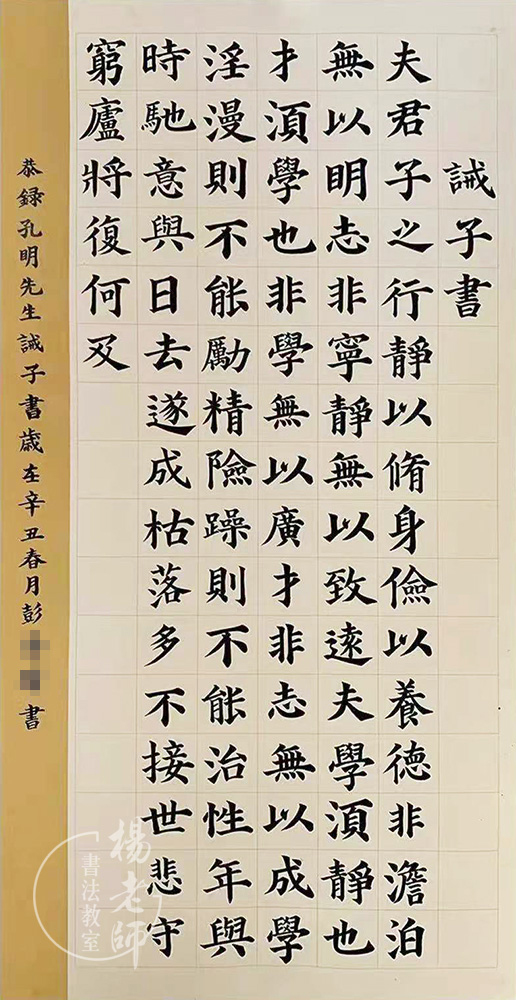 誡子書
夫君子之行靜以脩身儉以養德非澹泊
無以明志非寧靜無以致遠夫學須靜也
才須學也非學無以廣才非志無以成學
淫漫則不能勵精險躁則不能治性年與
時馳意與日去遂成枯落多不接世悲守
窮廬將復何及
恭録孔明先生誡子書歲在辛丑春月彭書
楊老師
「書法教室